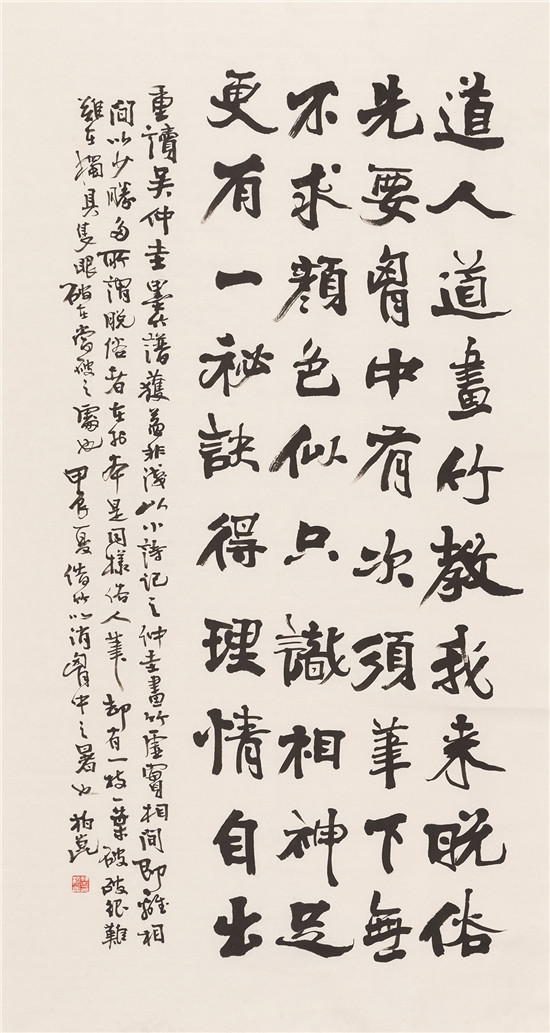 道人道畫竹教我来脱俗
先要胷中有次須筆下無
不求顔色似只識相神足
更有一祕訣得理情自出
重讀吴仲圭墨竹譜獲益非淺以小詩記之仲圭畫竹虛實相間即離相
間以少勝多所謂脱俗者在於本是同樣俗人筆却有一枝一葉破破很難
難在獨具隻眼破在當破之處也甲辰夏借竹以消胷中之暑也